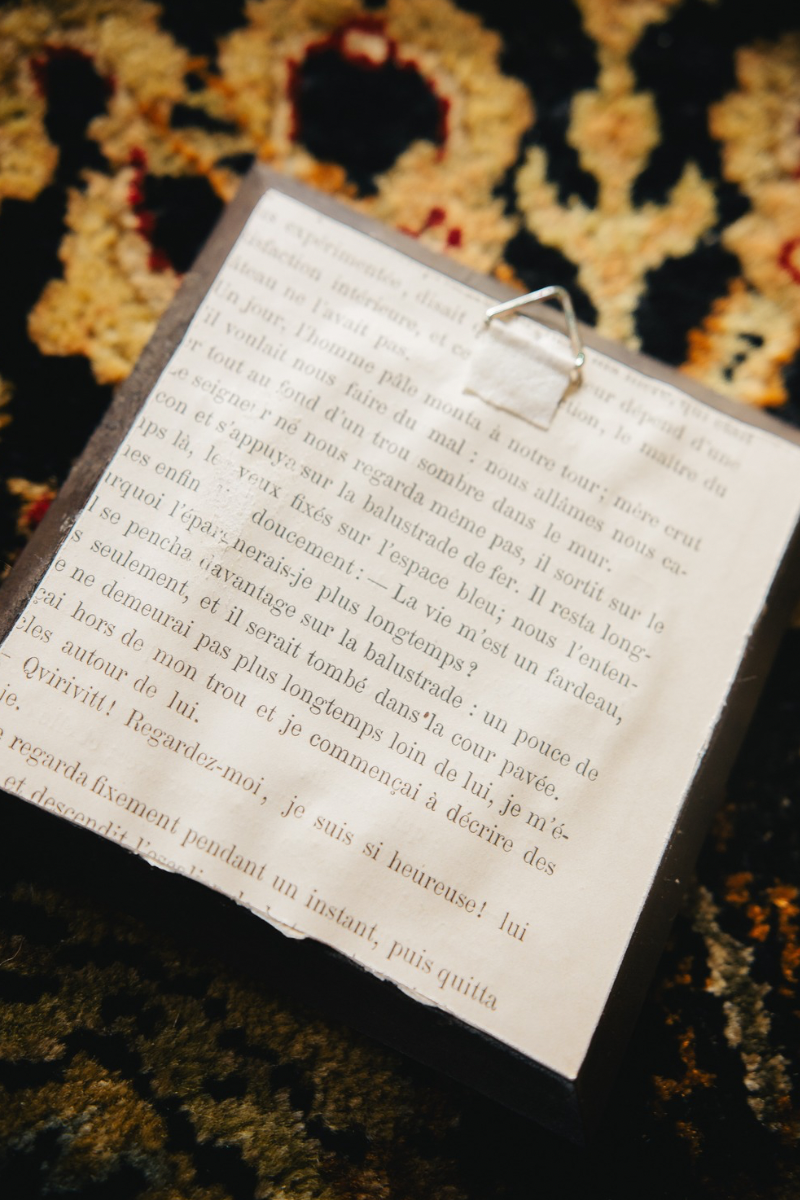 mère, qui était
expérimentée, disait eur dépend d'une
isfaction intérieure, et ce tion, le maître du
âteau ne l'avait pas.
Un jour, l'homme pâle monta à notre tour; mère crut
'il voulait nous faire du mal : nous allâmes nous ca-
r tout au fond d'un trou sombre dans le mur.
Le seigneur né nous regarda même pas, il sortit sur le
con et s'appuya sur la balustrade de fer. Il resta long-
ps là, les yeux fixés sur l'espace bleu; nous l'enten-
es enfin doucement : — La vie m'est un fardeau,
urquoi l'épargnerais-je plus longtemps?
l se pencha davantage sur la balustrade : un pouce de
s seulement, et il serait tombé dans la cour pavée.
e ne demeurai pas plus longtemps loin de lui, je m'é-
çai hors de mon trou et je commençai à décrire des
cles autour de lui.
– Qvirivitt! Regardez-moi, je suis si heureuse! lui
je.
e regarda fixement pendant un instant, puis quitta
et descendit